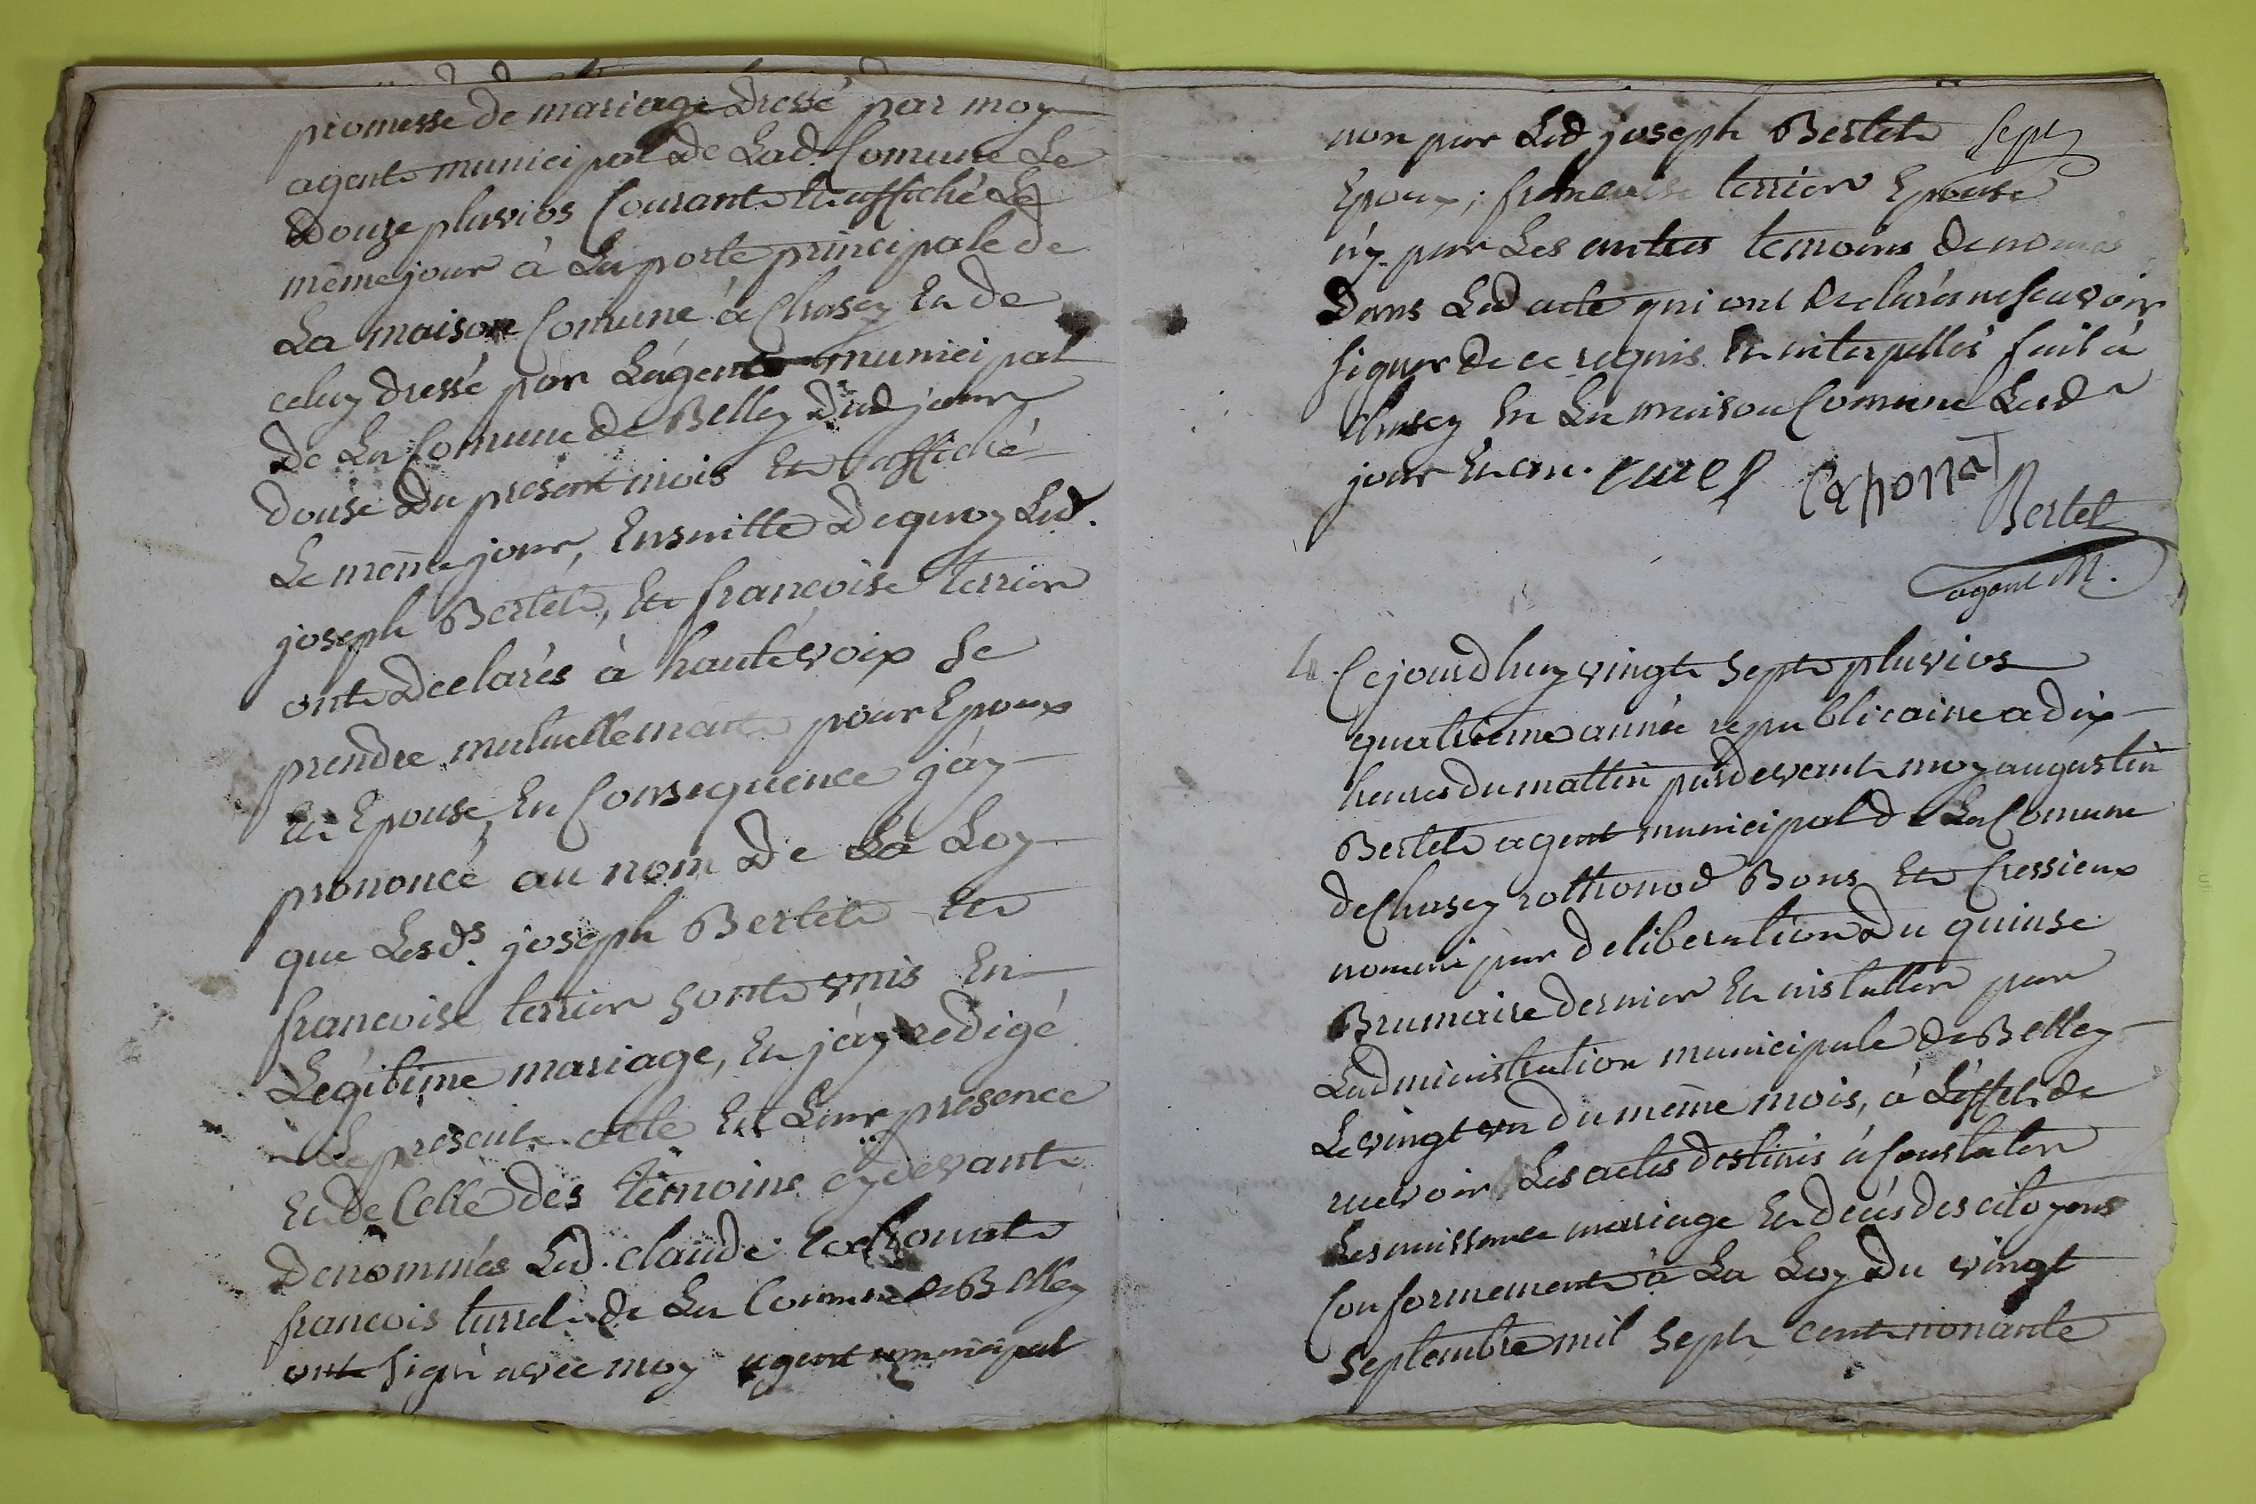 promesse de mariage dressé par moy
agent municipal de Lad. Comune Le
douze pluvios Courant Et affiché Le
même jour à La porte principale de
La maison Comune à Chasey En de
celuy dressé par Lágent municipal
de La Comune de Belley Dud. jour
douse du present mois Et affiché
Le même jour, Ensuitte de quoy Led.
joseph Bertet, Et françoise terrier
ont declarés à haute voix se
prendre mutuellemant pour Epoux
Et Epouse, En Consequence j'ay
prononcé au nom de La Loy
que Lesds. joseph Bertet Et
francoise terrier sont unis En
Legitime mariage, En j'ay redigé
Le present acte En Leur presence
En de Celle des temoins cydevant
denommés Led. claude
francois turrel de La Commune de Belley
ont signé avec moy agent municipal
non par Led joseph Bertet
Epoux, francoise terrier Epouse
n'y par Les autres temoins denomés
dans Led acte qui ont declarés ne scavoir
signer de ce requis En interpellés fait à
Chasey En La maison Comune Lesd.
jour En an.
Bertet
agent M.
Cejourdhuy vingt sept pluvios
quatrieme année republicaine a dix
heures du mattin pardevant moy augustin
Bertet agent municipal de La Comune
de Chasey rothonod Bons Et Cressieux
nommé par deliberation du quinse
Brumaire dernier En installer par
Ladministration municipale de Belley
Le vingt un du même mois, à Léffet de
recevoir Les actes destinés à Constater
Les naissance mariage En decés des citoyens
Conformement à La Loy du vingt
septembre mil sept cent nonante